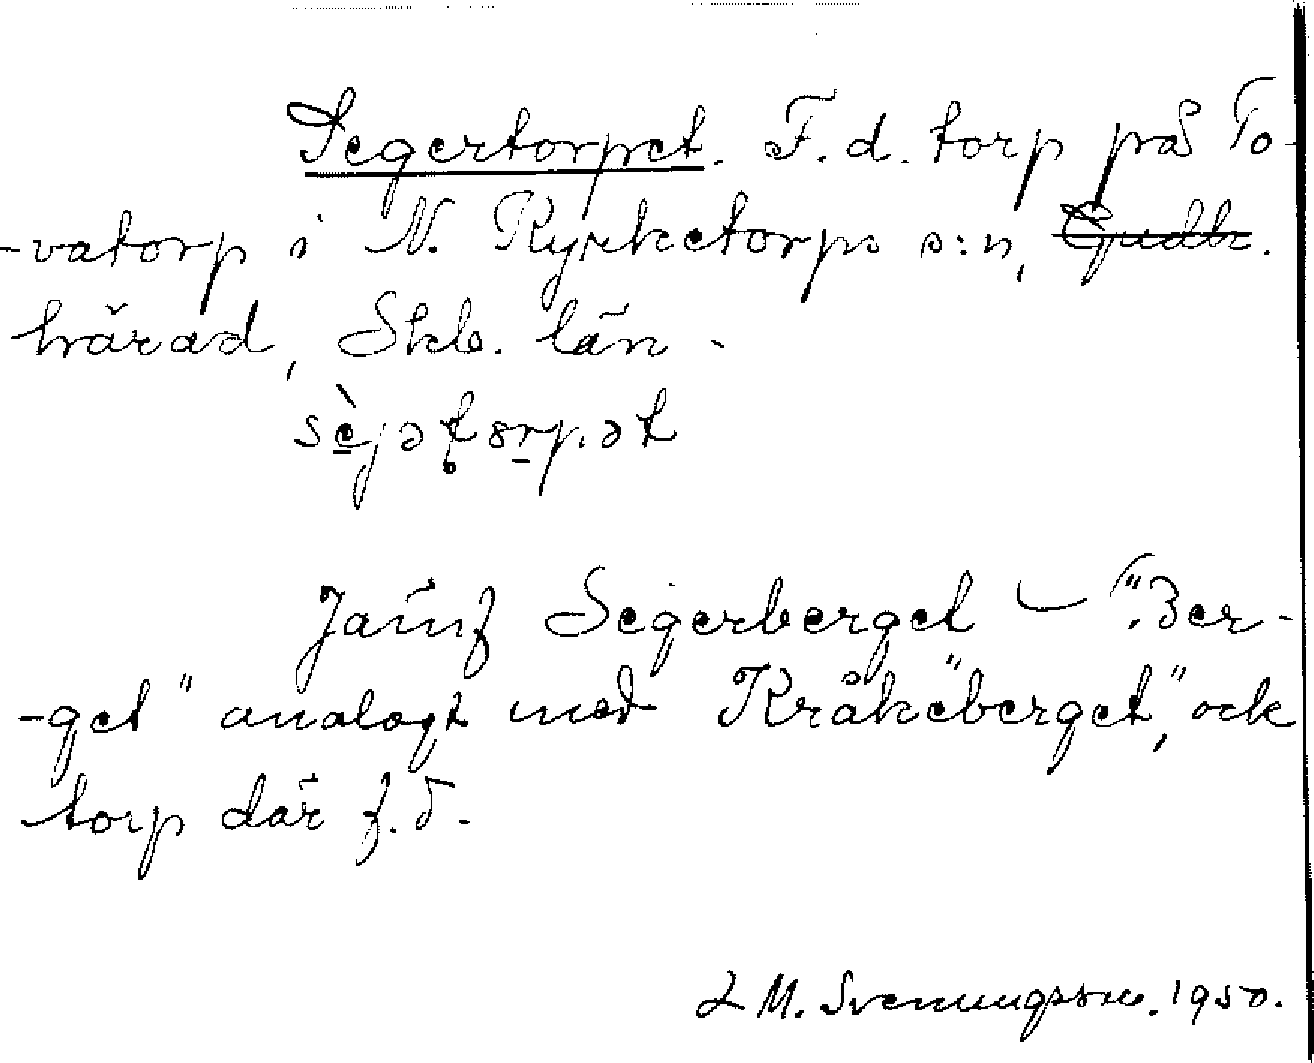 Segertorpet. F. d. torp på To-
-vatorp i N. Kyrketorps s:n, Gudh.
härad, Skb. län.
Jämf Segerberget — "Ber-
-get" analogt med "Kråkeberget", ock
torp där f. d.
L M. Svenungsson. 1950.